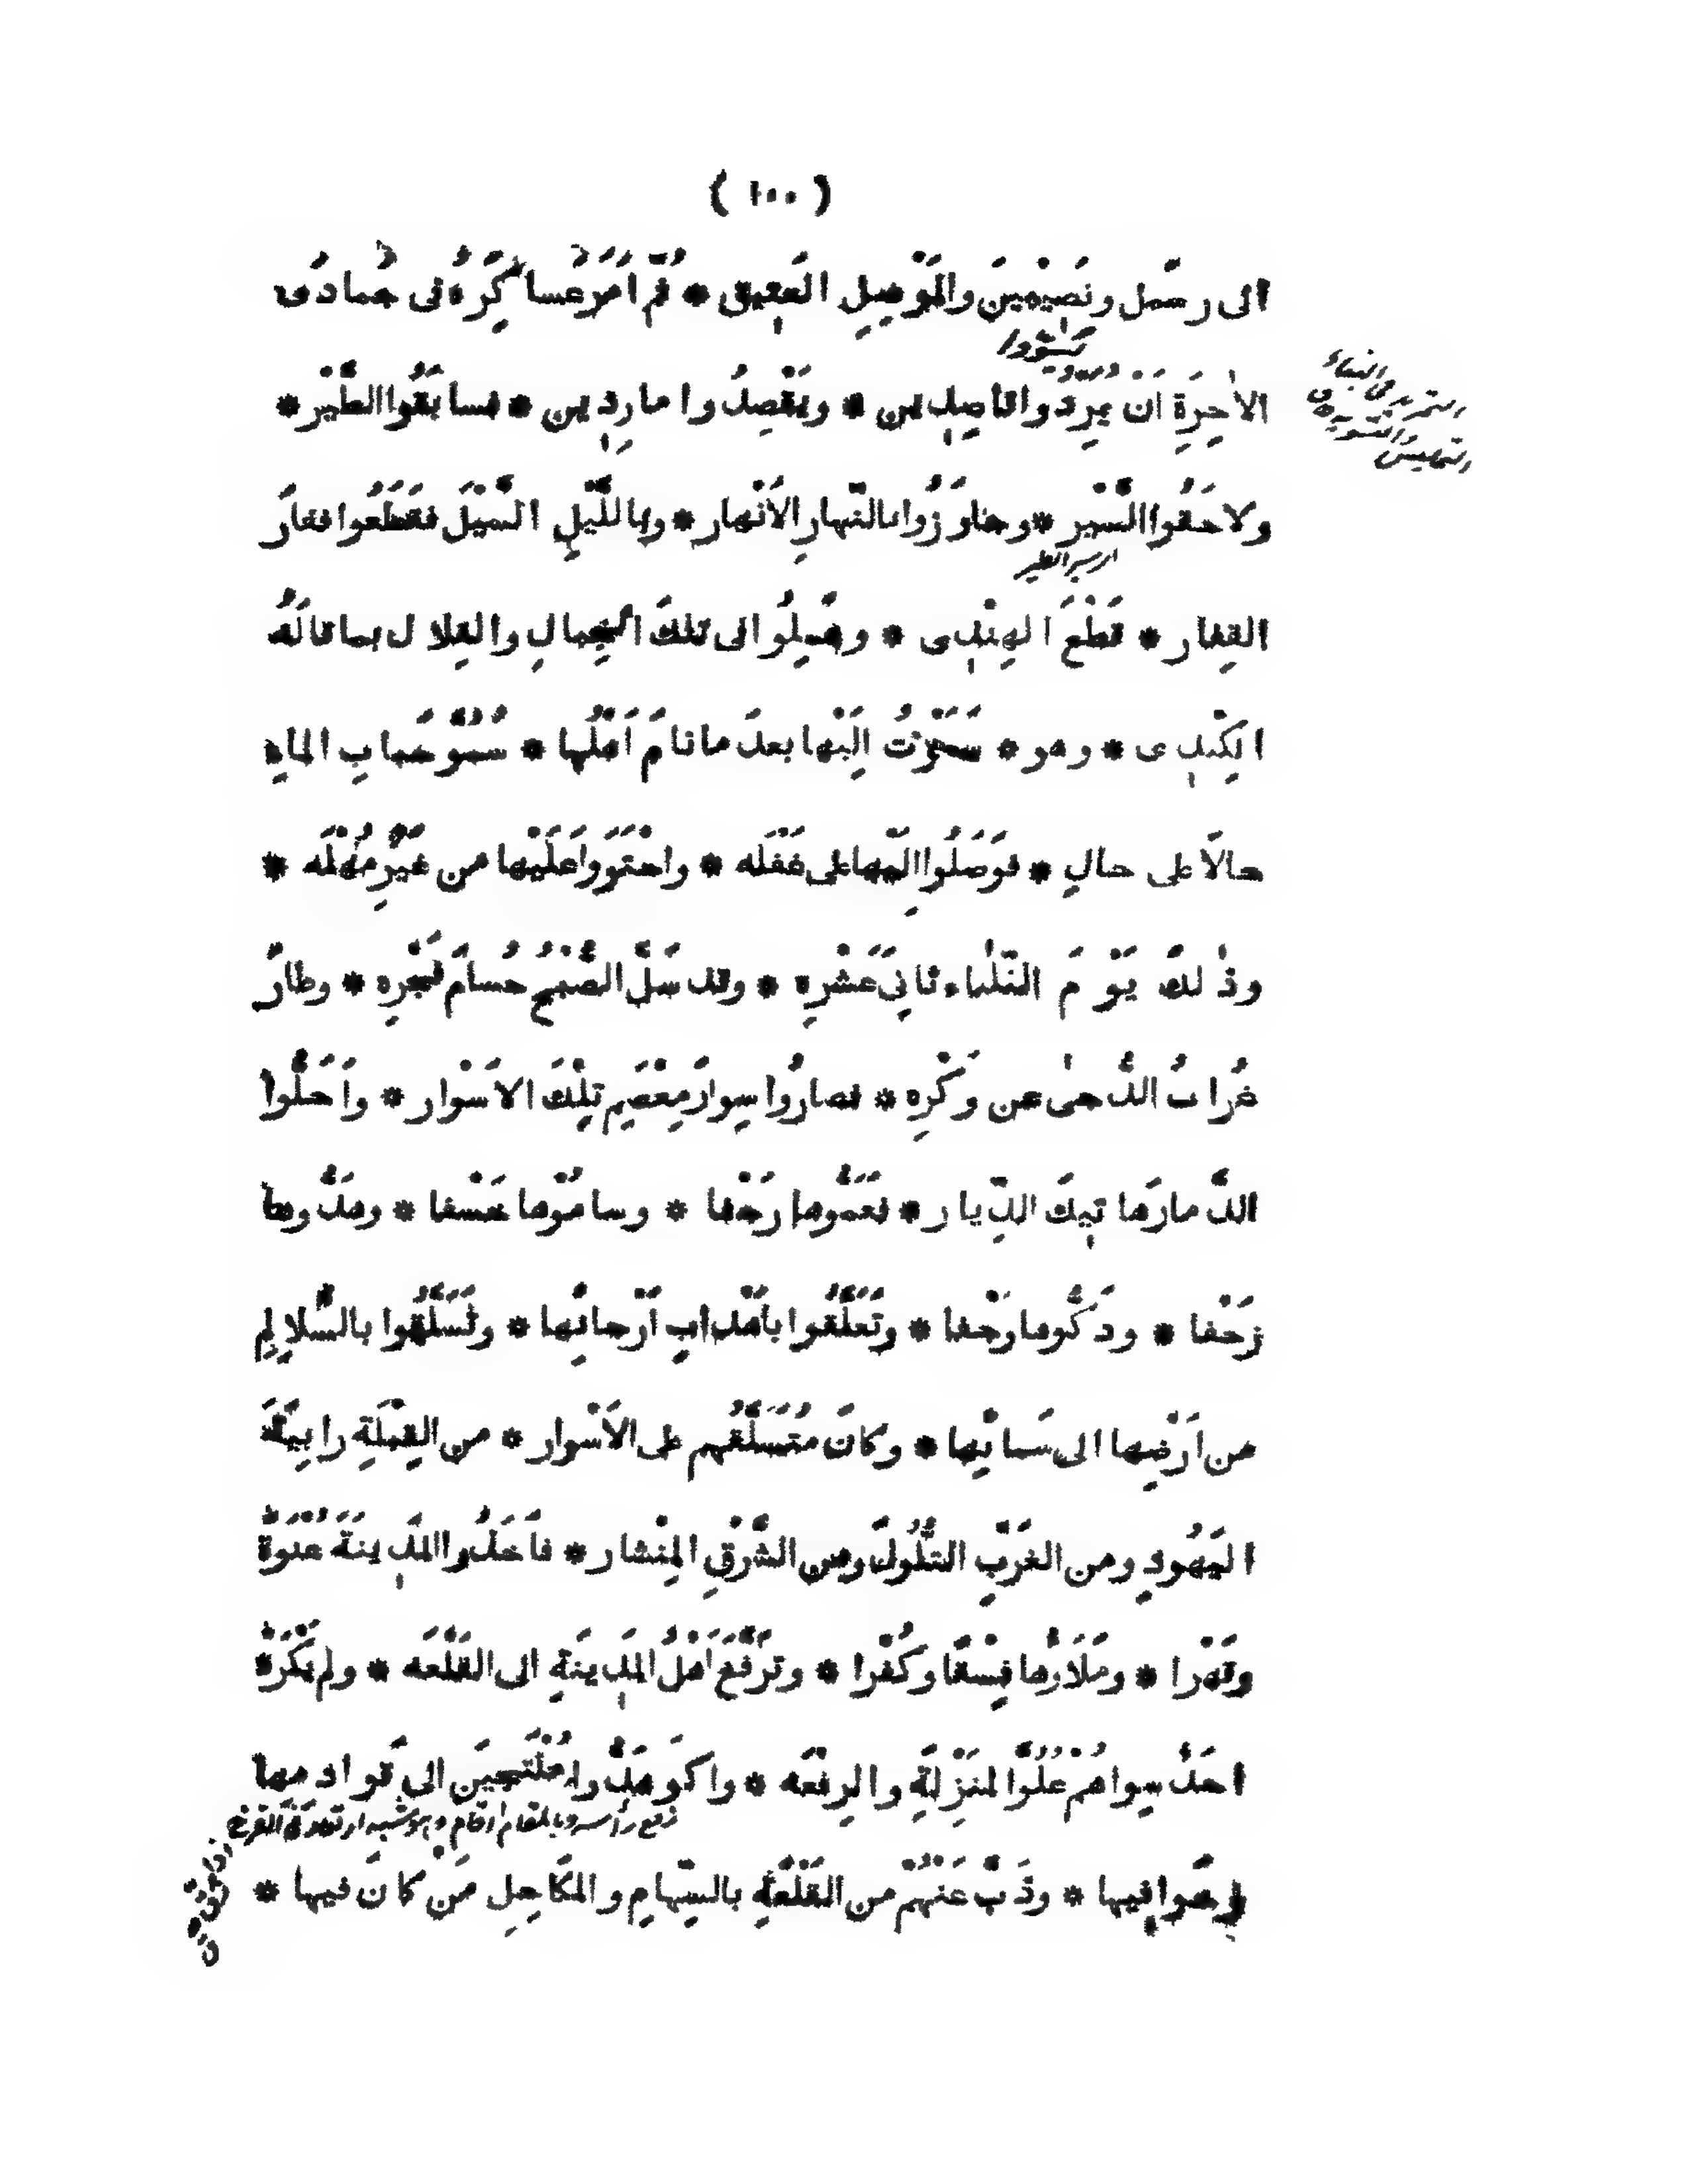 ( ١٠٠ )
الى رسمل ونَصِيبينَ والمَوْصِلِ العَتِيق * ثُمَّ اَمَرَ عَساكِرَهُ فى جُمادَى
الاٰخِرَةِ اَنْ يُمَرِّدُوا قاصِدِين * ويَقْصِدُوا مارِدِين * فسابَقُوا الطَّيْر *
ولاحَقُوا السَّيْر * وجاوَزُوا بالنّهارِ الاَنْهار * وباللَّيْلِ السَّيْلَ فقَطَعُوا فقارَ
القِفار * قَطْعَ الهِنْدِى * وصَلُوا الى تلكَ الجِبالِ والقِلال بما قالَهُ
الكِنْدِى * وهو * سَمَوْتُ اِلَيْها بعدَ ما نامَ اَهْلُها * سُمُوَّ حَبابِ الماءِ
حالاً على حالِ * فوَصَلُوا اليها على غَفْلَه * واحْتَوَوا عَلَيْها من غَيْرِ مُهْلَه *
وذٰلكَ يَوْمَ الثّلٰثاء ثانِىَ عَشْرِه * وقد سَلَّ الصُّبْحُ حُسامَ فَجْرِه * وطارَ
غُرابُ الدُّجىٰ عن وَكْرِه * فصارُوا سِوارَ مِعْصَمِ تِلْكَ الاَسْوار * واَحَلُّوا
الدَّمارَها تِيكَ الدِّيار * فعَمُّوها رَجْفا * وسامُوْها خَسْفا * وهَدُّوها
زَحْفا * ودَكُّوها وَجْفا * وتَعَلَّقُوا باَهْدابِ اَرْجائِها * وتَسَلَّقُوا بالسَّلالِمِ
من اَرْضِها الى سَمائِها * وكانَ مُتَسَلَّقُهم على الاَسْوار * من القِبْلَةِ رابِيَةَ
اليَهُودِ ومن الغَرْبِ التُّلُولَ ومن الشَّرْقِ المِنْشار * فاَخَذُوا المَدِينَةَ عَنْوَةً
وقَهْرا * ومَلَاُوها فِسْقًا وكُفْرا * وتَرَفَّعَ اَهْلُ المَدِينَةِ الى القَلْعَه * ولم يَكْرَهْ
اَحَدٌ سِواهُمْ عُلُوَّا لمَنْزِلَةِ والرِفْعَه * واكْوَهَدُّوا مُلْتَجِينَ الى قَوادِمِها
وخَوافِيها * وذَبَّ عَنْهُمْ من القَلْعَةِ بالسِّهامِ والمَكاحِلِ مَنْ كانَ فيها *